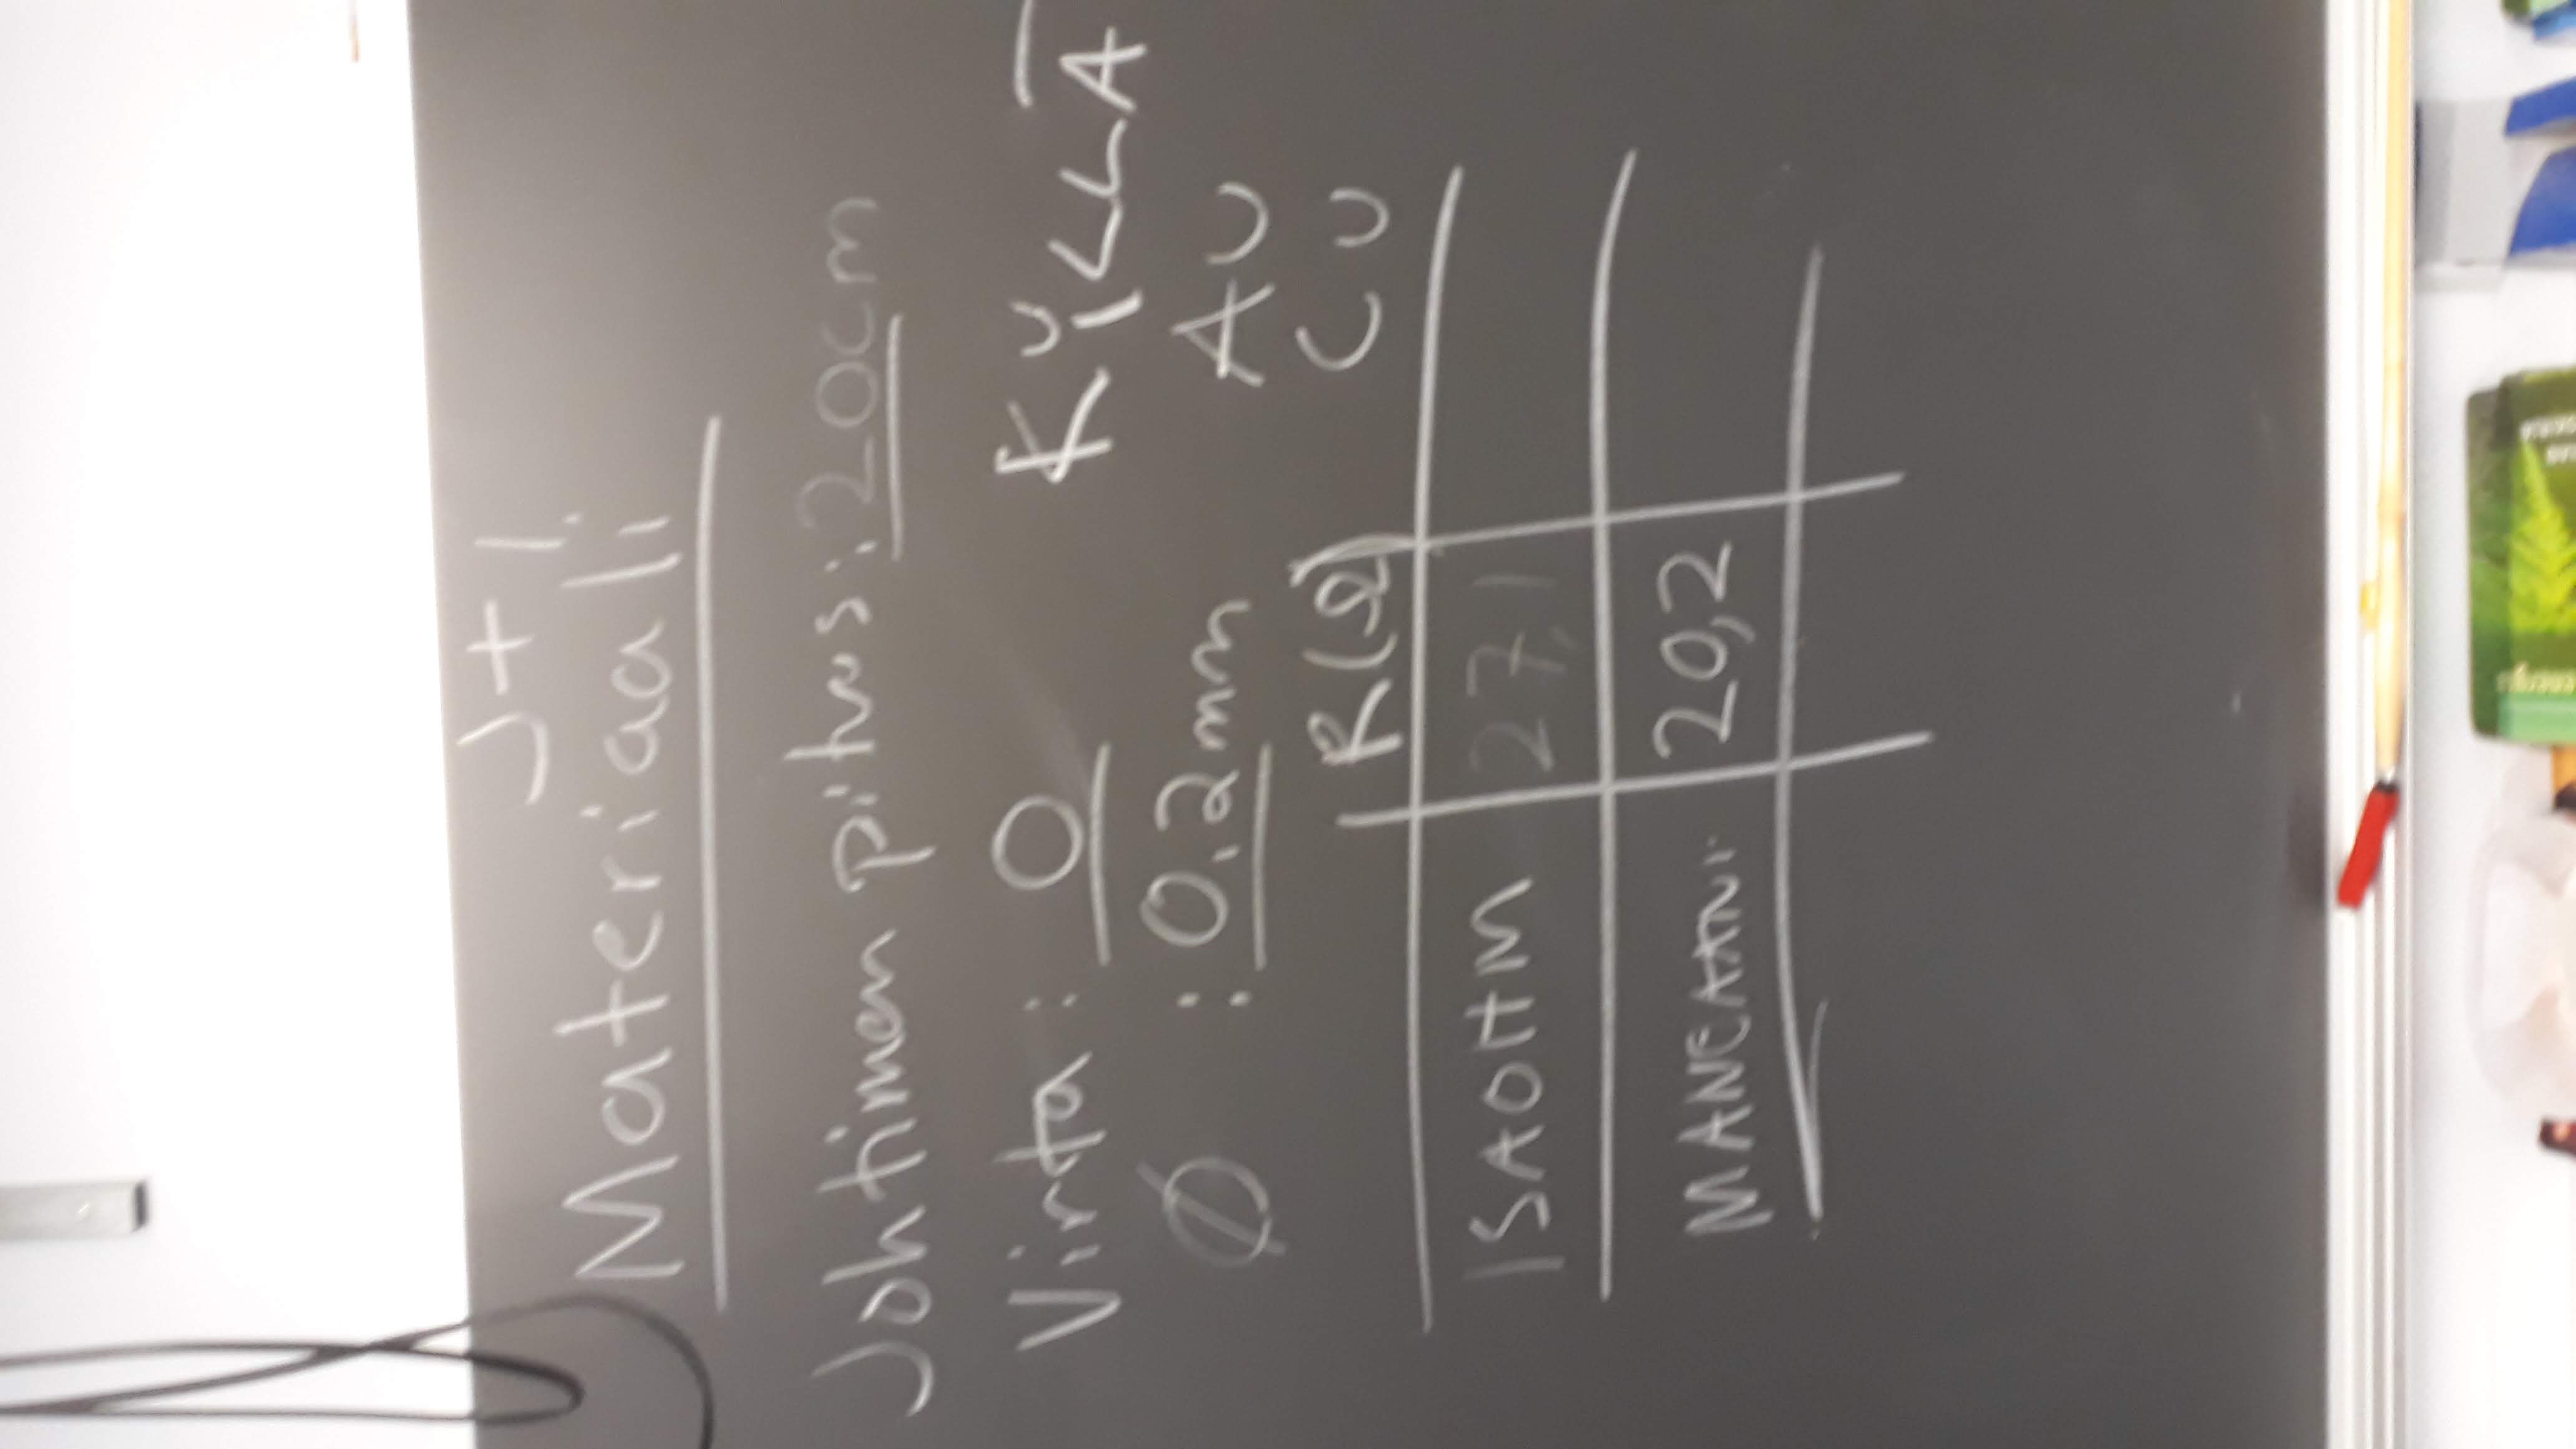 J+1.
Materiaali
Johtimen pituus: 20cm
Virta : 0 KYLLÄ
Ø : 0,2mm AU
CU
R(Ω)
ISAOHM 27,1
20,2